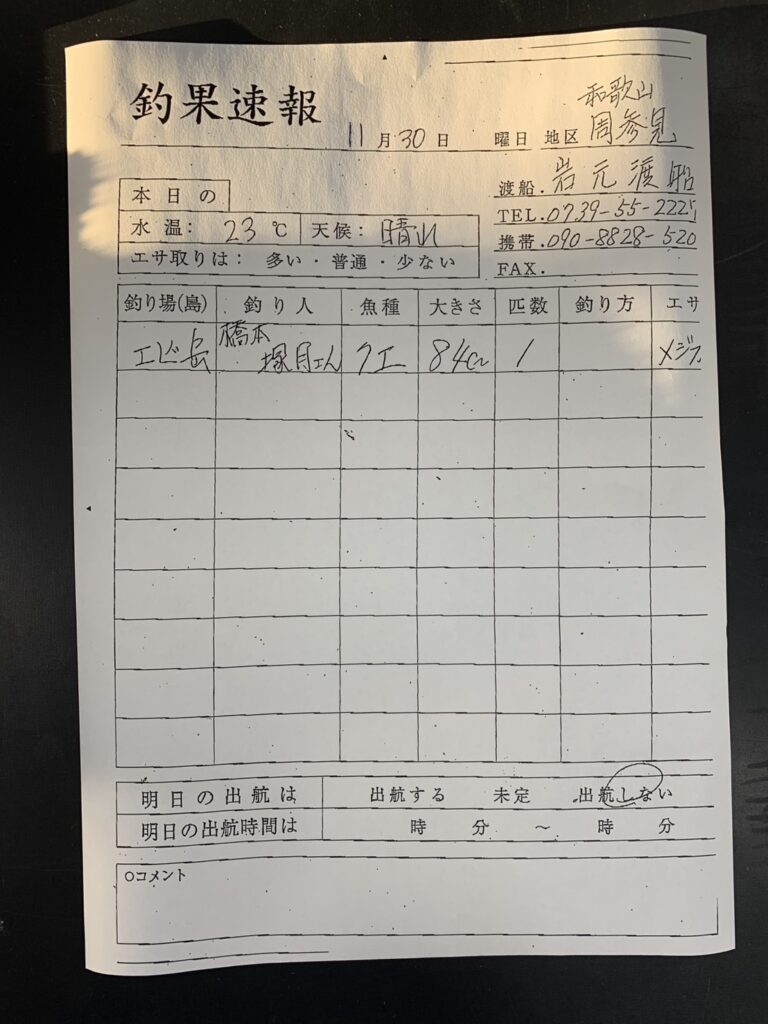 釣果速報
11月30日 曜日 地区 和歌山 周参見
渡船. 岩元渡船
TEL. 0739-55-222
携帯. 090-8828-520
FAX.
本日の
水温: 23℃ 天候: 晴れ
エサ取りは: 多い・普通・少ない
釣り場(島) 釣り人 魚種 大きさ 匹数 釣り方 エサ
橋本
エビ岳 さん クエ 84cm 1 メジカ
明日の出航は 出航する 未定 出航しない
明日の出航時間は 時 分 ～ 時 分
○コメント